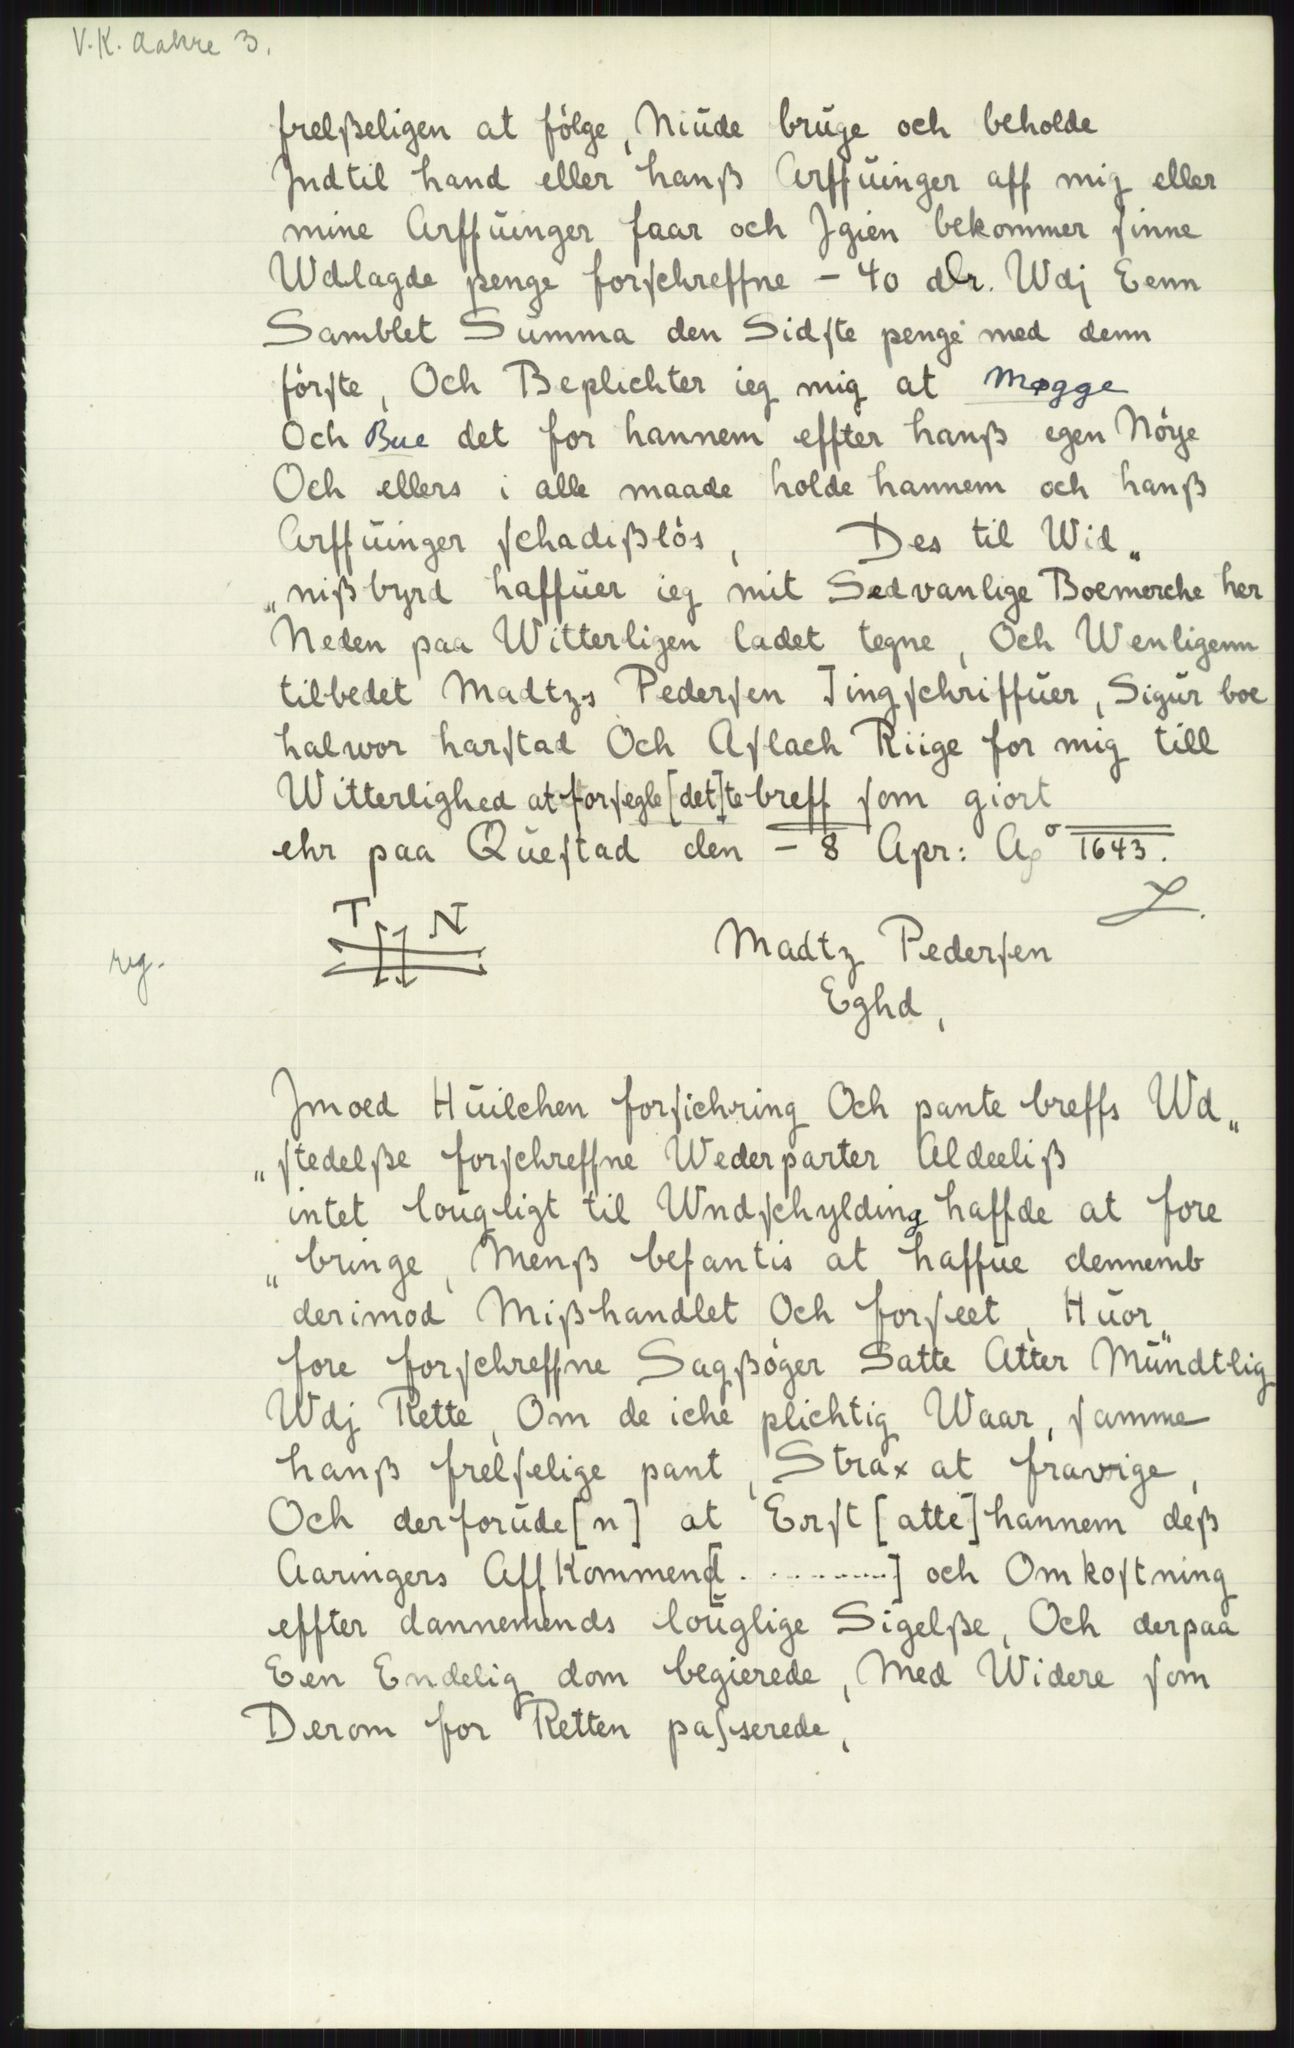 V.K. Aakre 3.
frelßeligen at fölge, Niude bruge och beholde
Jndtil hand eller hanß Arffuinger aff mig eller
mine Arffuinger faar och Jgien bekommer sinne
Wdlagde penge forschreffne – 40 dlr. Wdj Eenn
Samblet Summa den Sidste penge med denn
förste, Och Beplichter ieg mig at Møgge
Och Bue det for hannem effter hanß egen Nöye
Och ellers i alle maade holde hannem och hanß
Arffuinger schadißlös, Des til Wid„
„nißbyrd haffuer ieg mit Sedvanlige Boemerche her
Neden paa Witterligen ladet tegne, Och Wenligenn
tilbedet Madtzs Pedersen Tingschriffuer, Sigur boe
halwor harstad Och Aslach Riige for mig till
Witterlighed at forsegle [det]te breff som giort
ehr paa Questad den – 8 Apr: Aº 1643.
T N
reg.
Madtz Pedersen
Eghd,
Jmoed Huilchen forsichring Och pante breffs Wd„
„stedelße forschreffne Wederparter Aldeeliß
intet lougligt til Wndschylding haffde at fore
„bringe, Menß befantis at haffue dennemb
derimod Mißhandlet Och forseet, Huor„
fore forschreffne Sagßöger Satte Atter Mundtlig
Wdj Rette, Om de iche plichtig Waar, samme
hanß frelselige pant, Strax at fravige,
Och derforude[n] at Erst[atte] hannem deß
Aaringers Affkommend[.........] och Omkostning
effter dannemends louglige Sigelße, Och derpaa
Een Endelig dom begierede, Med Widere som
Derom for Retten passerede,